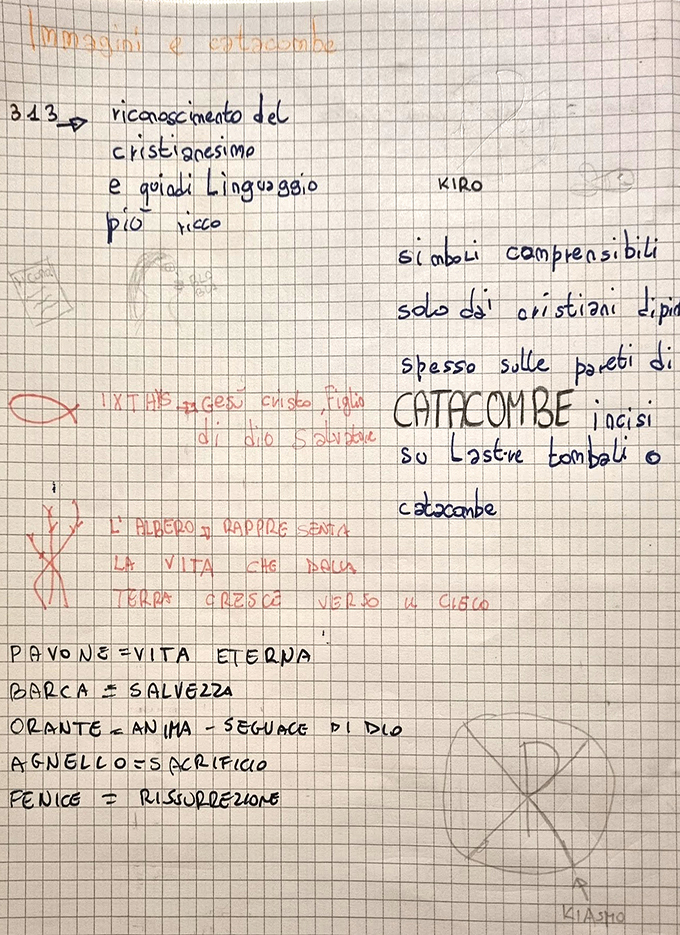 Immagini e catacombe
313 → riconoscimento del
cristianesimo
e quindi Linguaggio
più ricco
KIRO
simboli comprensibili
solo dai cristiani dipin
spesso sulle pareti di
CATACOMBE incisi
su Lastre tombali o
catacombe
BLA
BLA
IXTHYS → Gesù cristo, Figlio
di dio Salvatore
L'ALBERO → RAPPRESENTA
LA VITA CHE DALLA
TERRA CRESCE VERSO IL CIELO
PAVONE = VITA ETERNA
BARCA = SALVEZZA
ORANTE = ANIMA - SEGUACE DI DIO
AGNELLO = SACRIFICIO
FENICE = RISSURREZIONE
P
KIASMO